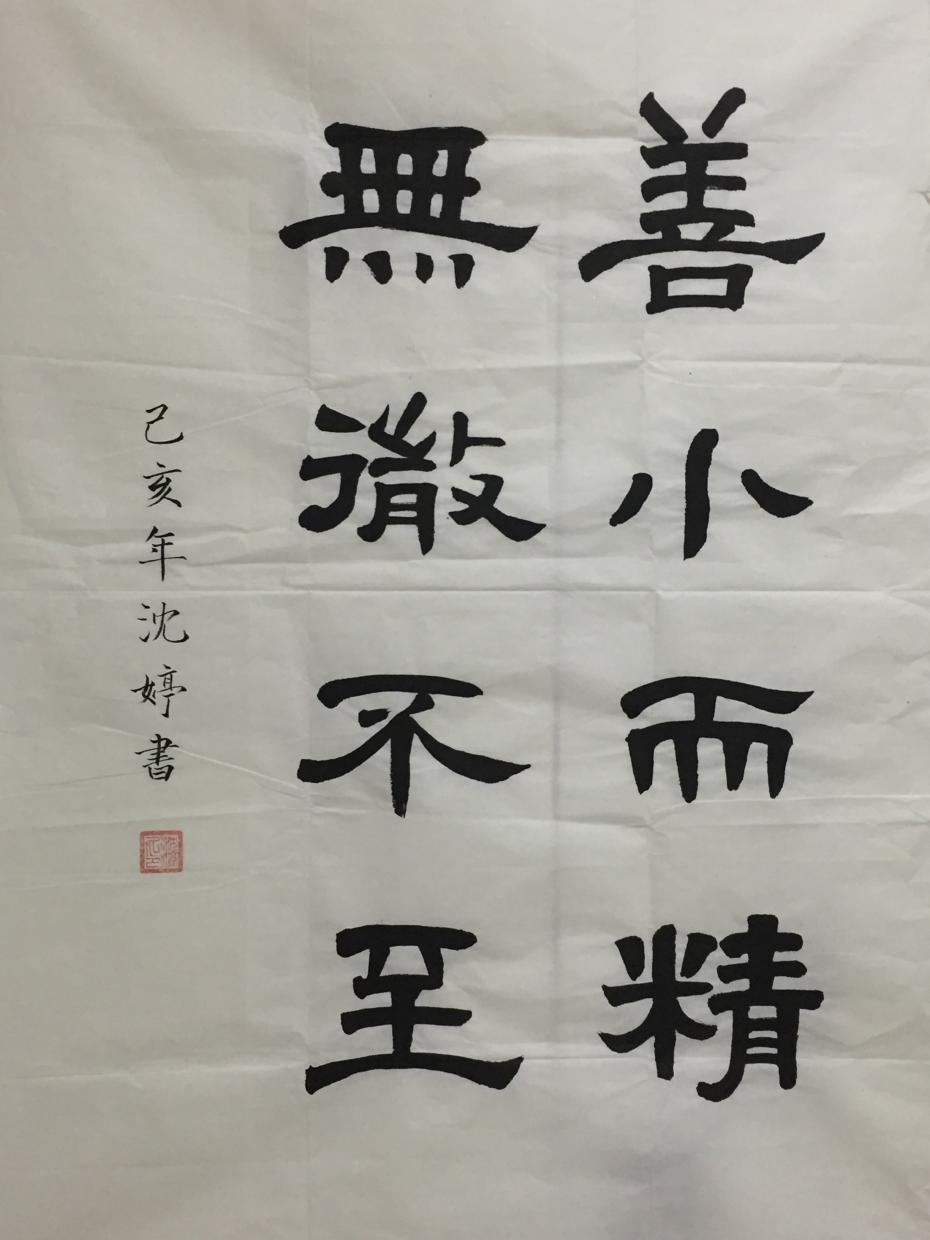 善小而精
無微不至
己亥年沈婷書